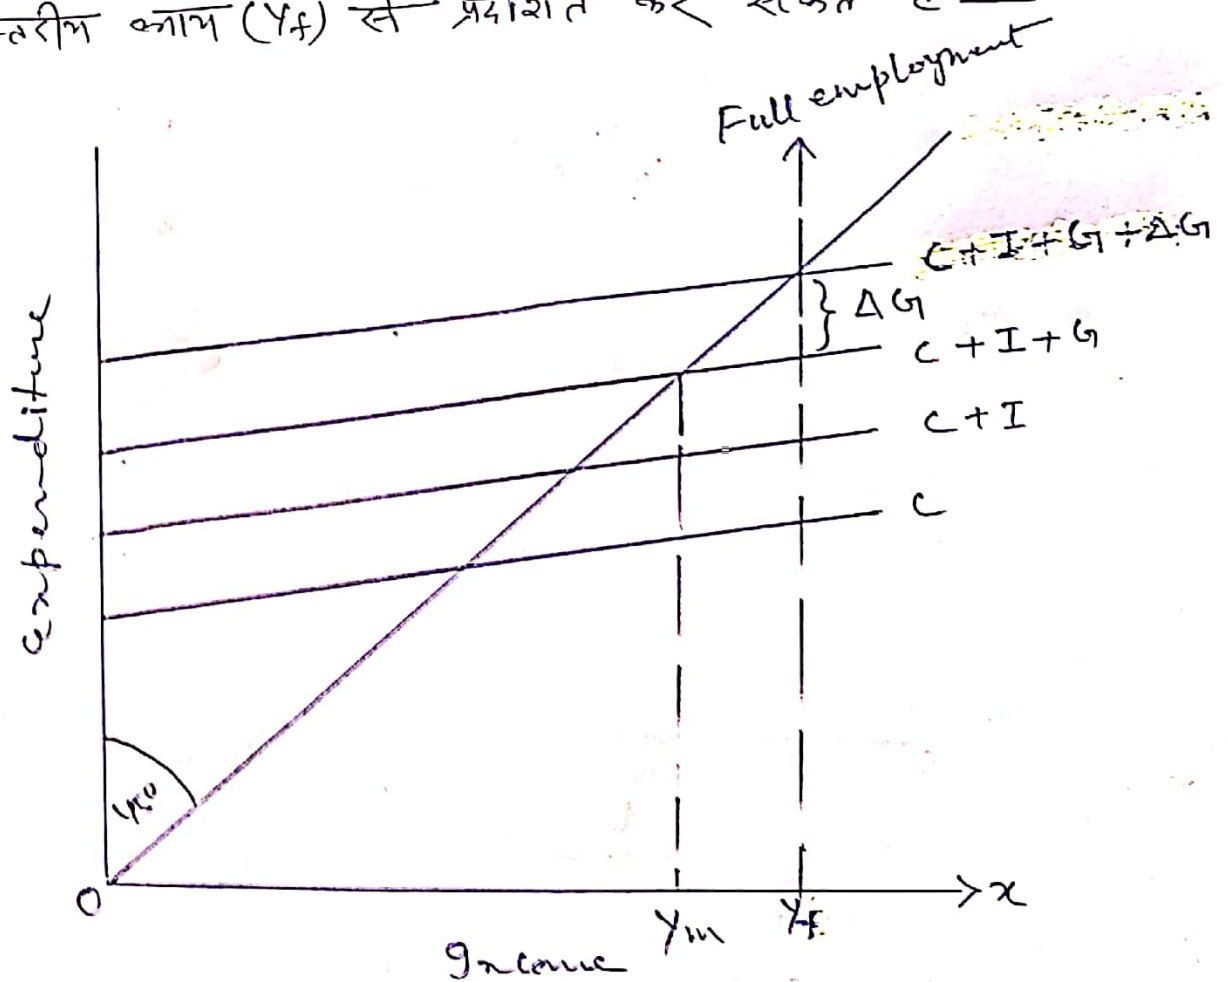 स्तरीय आय (Yf) से प्रदर्शित कर सकते
Full employment
C+I+G+ΔG
ΔG
C+I+G
C+I
C
Expenditure
45°
O
x
Ym
Yf
Income